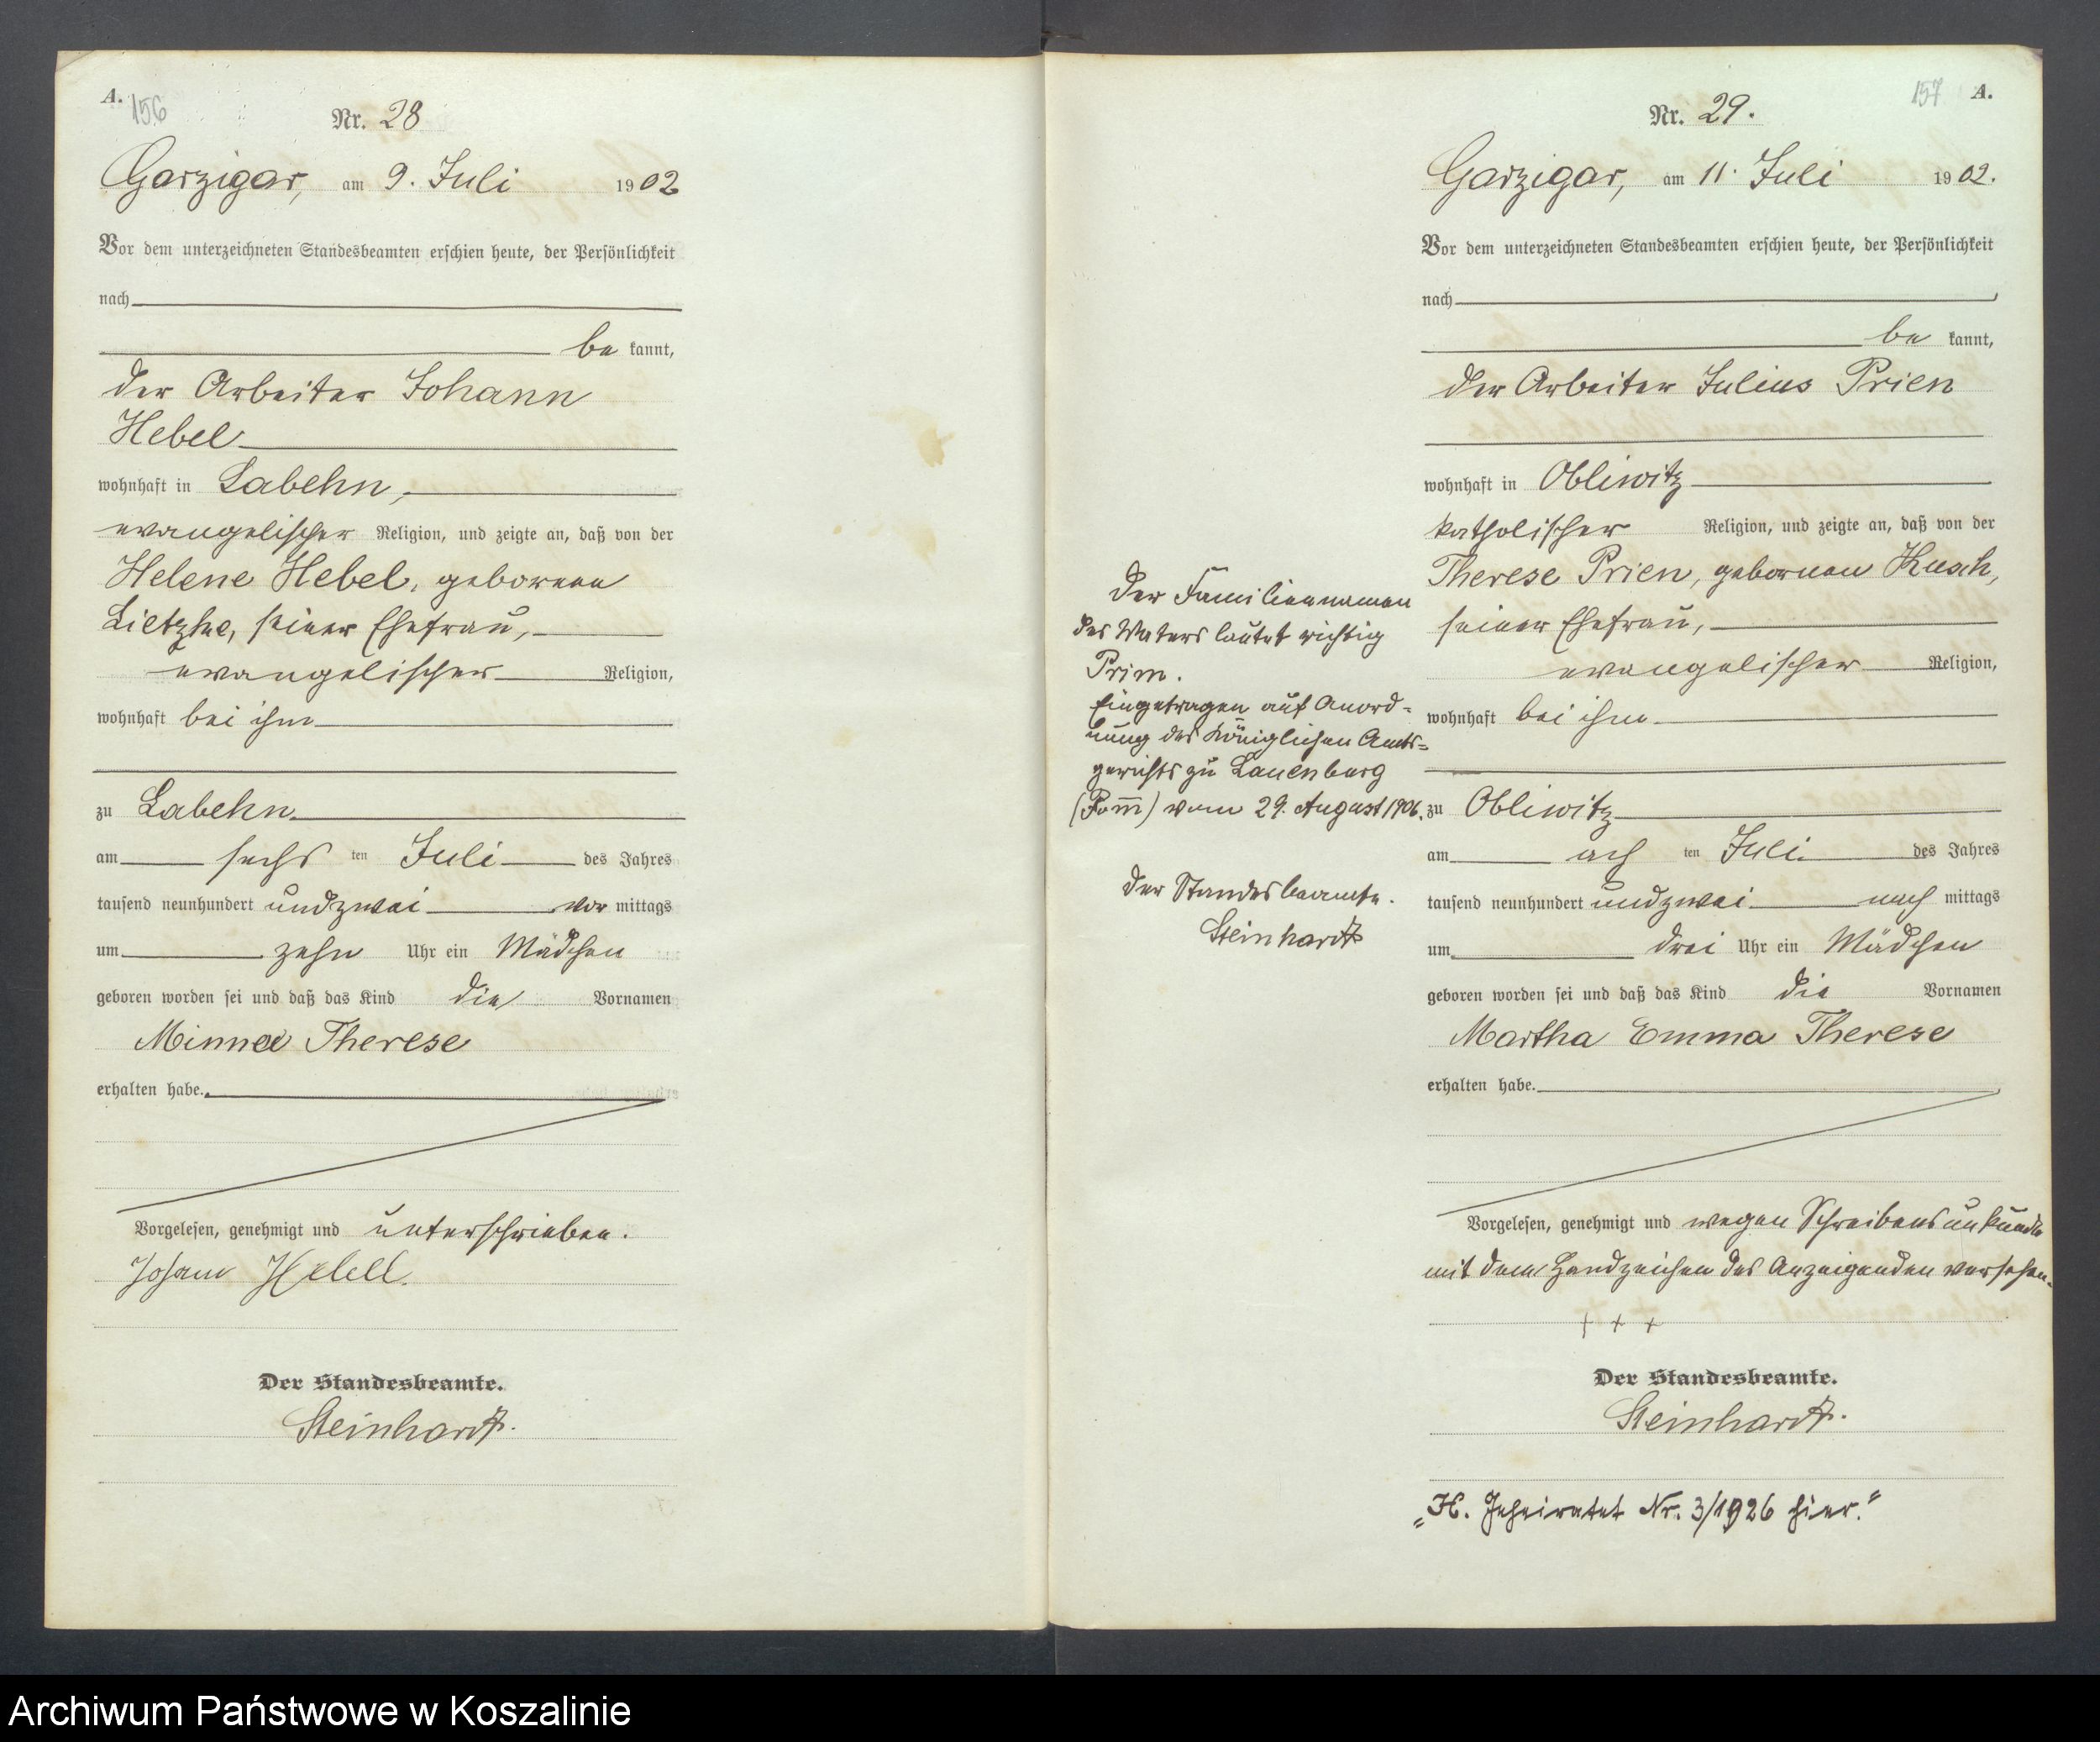 A.
156
Nr. 28
Garzigar, am 9. Juli 1902
Vor dem unterzeichneten Standesbeamten erschien heute, der Persönlichkeit
nach
be kannt,
der Arbeiter Johann
Hebel
wohnhaft in Labehn,
evangelischer Religion, und zeigte an, daß von der
Helene Hebel, geborenen
Lietzke, seiner Ehefrau,
evangelischer Religion,
wohnhaft bei ihm
zu Labehn
am sechs ten Juli des Jahres
tausend neunhundert undzwei vor mittags
um zehn Uhr ein Mädchen
geboren worden sei und daß das Kind die Vornamen
Minna Therese
erhalten habe.
Vorgelesen, genehmigt und unterschrieben.
Johann Hebell.
Der Standesbeamte.
Steinhardt.
157 A.
Nr. 29.
Garzigar, am 11. Juli 1902.
Vor dem unterzeichneten Standesbeamten erschien heute, der Persönlichkeit
nach
be kannt,
der Arbeiter Julius Prien
wohnhaft in Obliwitz
katholischer Religion, und zeigte an, daß von der
Therese Prien, gebornen Kusch,
seiner Ehefrau,
evangelischer Religion,
wohnhaft bei ihm
zu Obliwitz
am ach ten Juli des Jahres
tausend neunhundert undzwei nach mittags
um drei Uhr ein Mädchen
geboren worden sei und daß das Kind die Vornamen
Martha Emma Therese
erhalten habe.
Vorgelesen, genehmigt und wegen Schreibensunkunde
mit dem Handzeichen des Anzeigenden versehen.
+ + +
Der Standesbeamte.
Steinhardt.
"H. Geheiratet Nr. 3/1926 hier."
Der Familiennamen
des Vaters lautet richtig
Prim.
Eingetragen auf Anord=
nung des Königlichen Amts=
gerichts zu Lauenburg
(Pom̅) vom 29. August 1906.
Der Standesbeamte.
Steinhardt
Archiwum Państwowe w Koszalinie